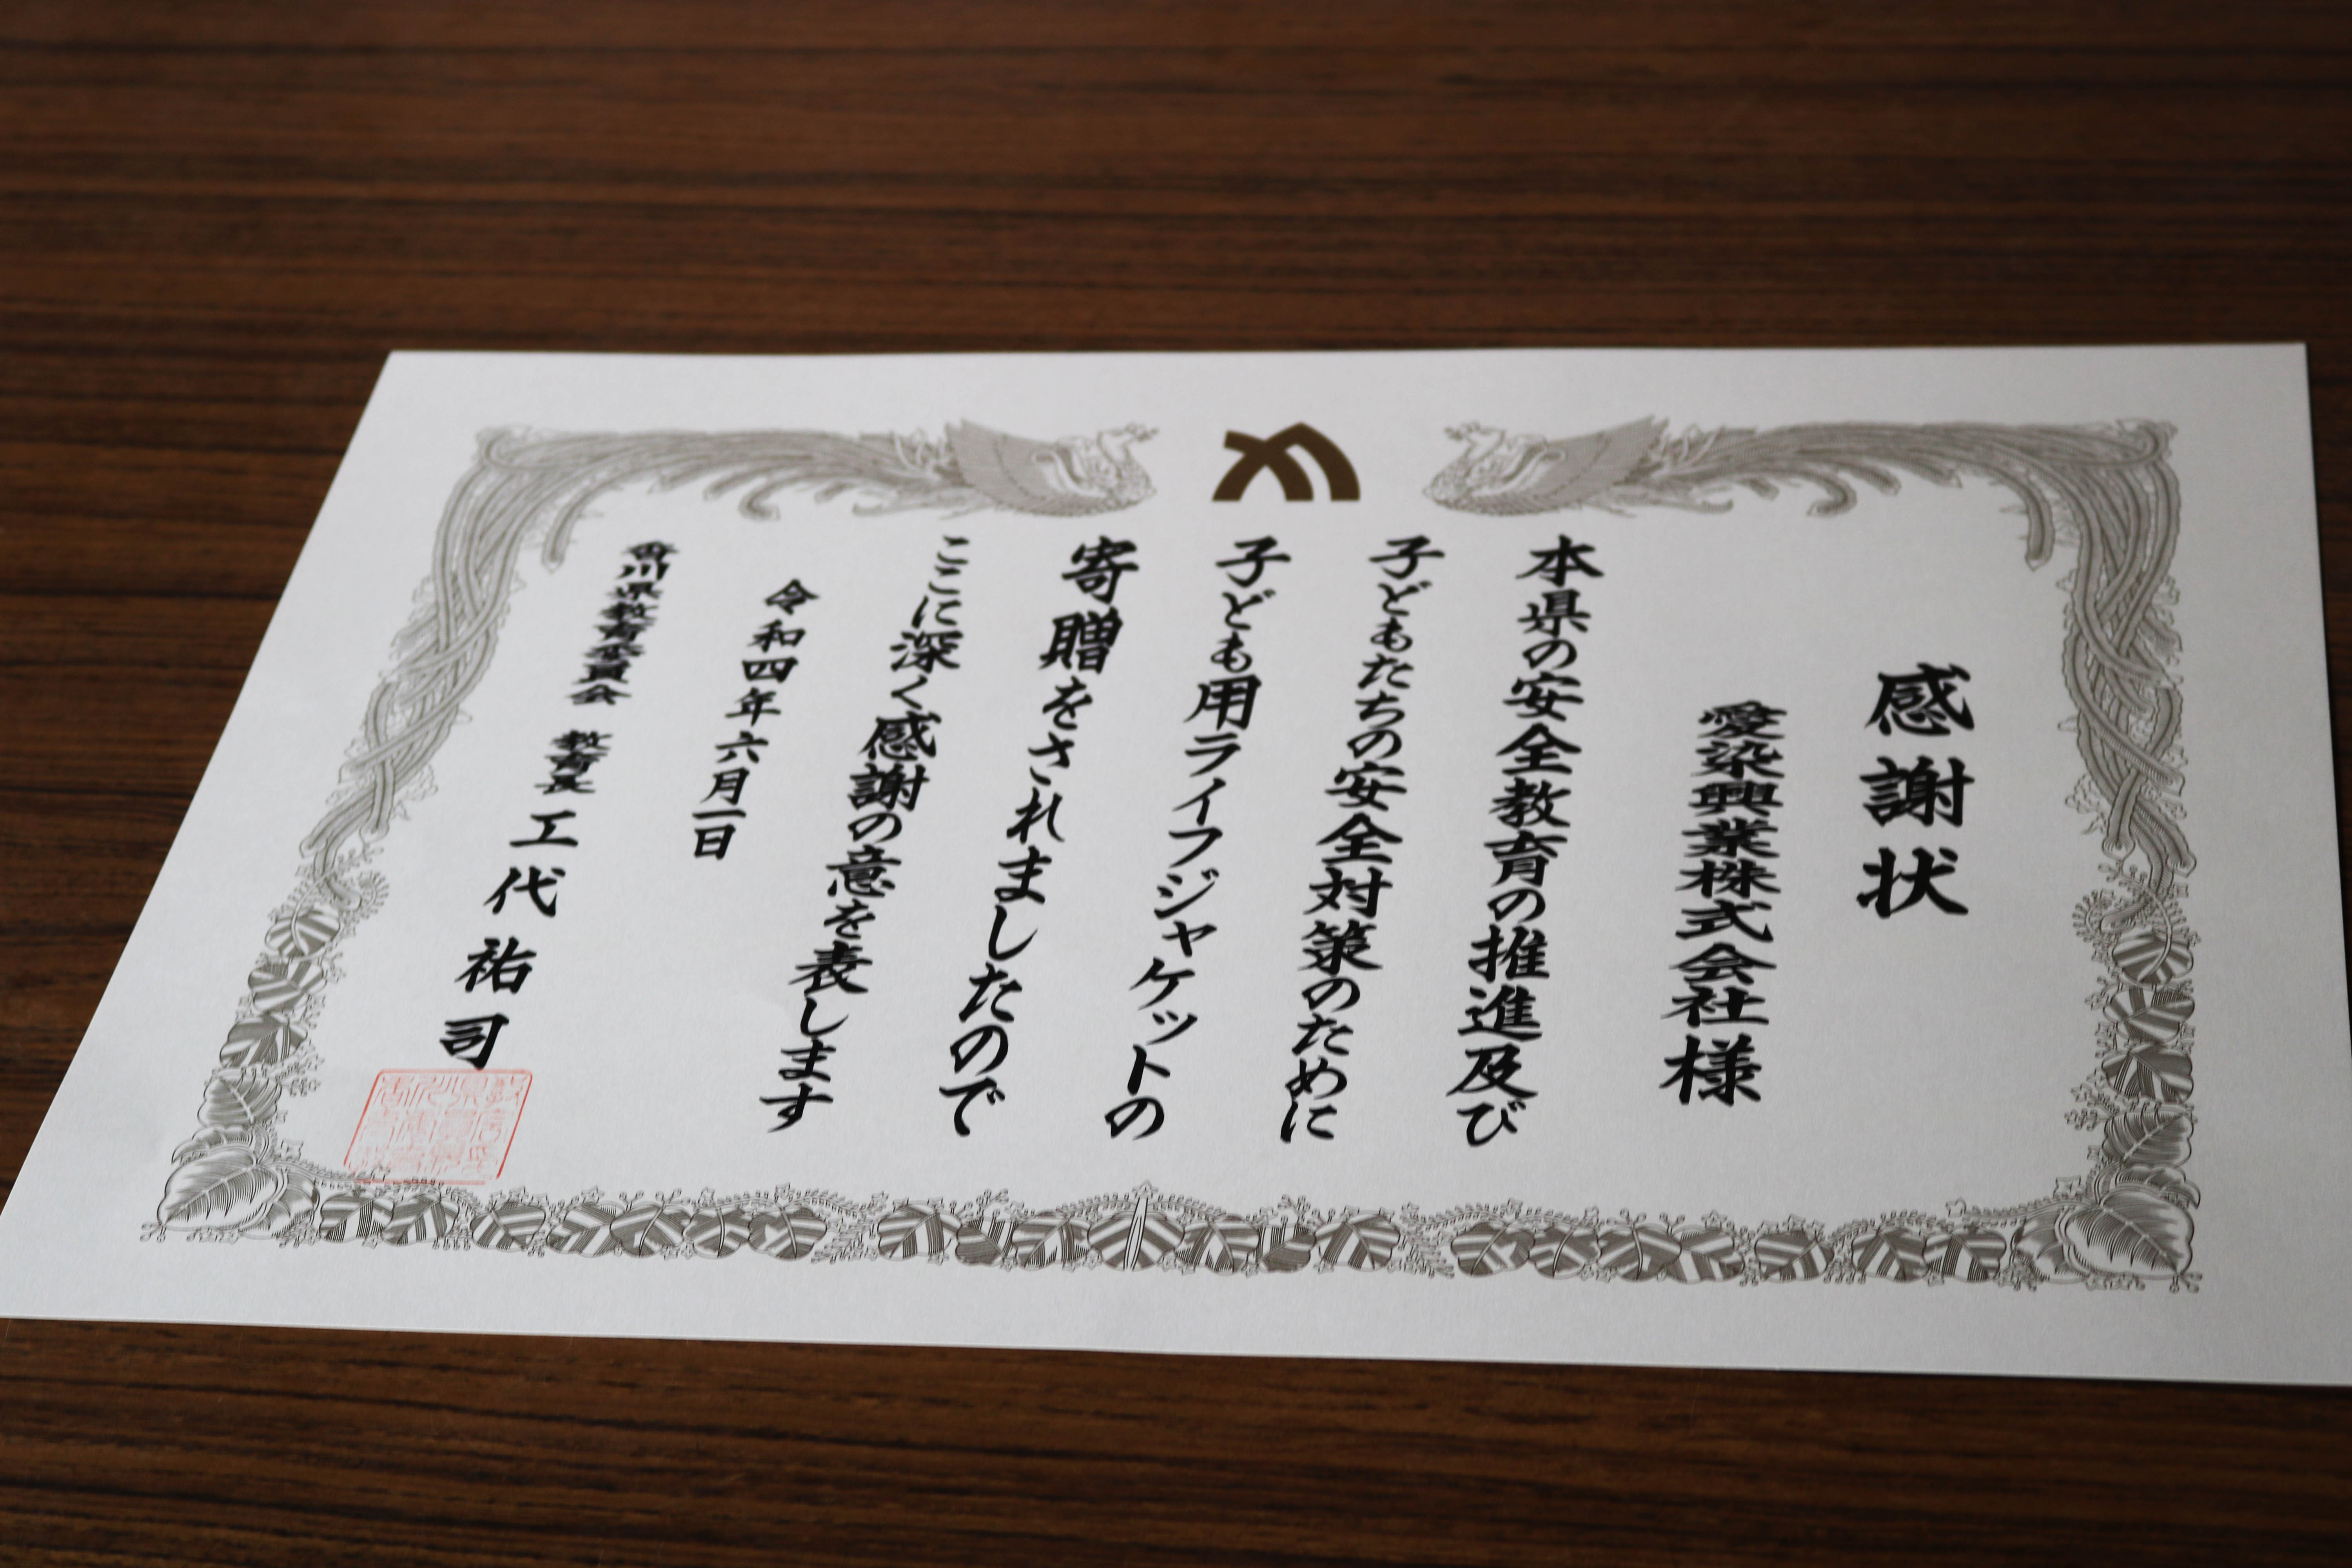 感謝状
愛染興業株式会社様
本県の安全教育の推進及び
子どもたちの安全対策のために
子ども用ライフジャケットの
寄贈をされましたので
ここに深く感謝の意を表します
令和四年六月一日
香川県教育委員会 教育長 工代祐司